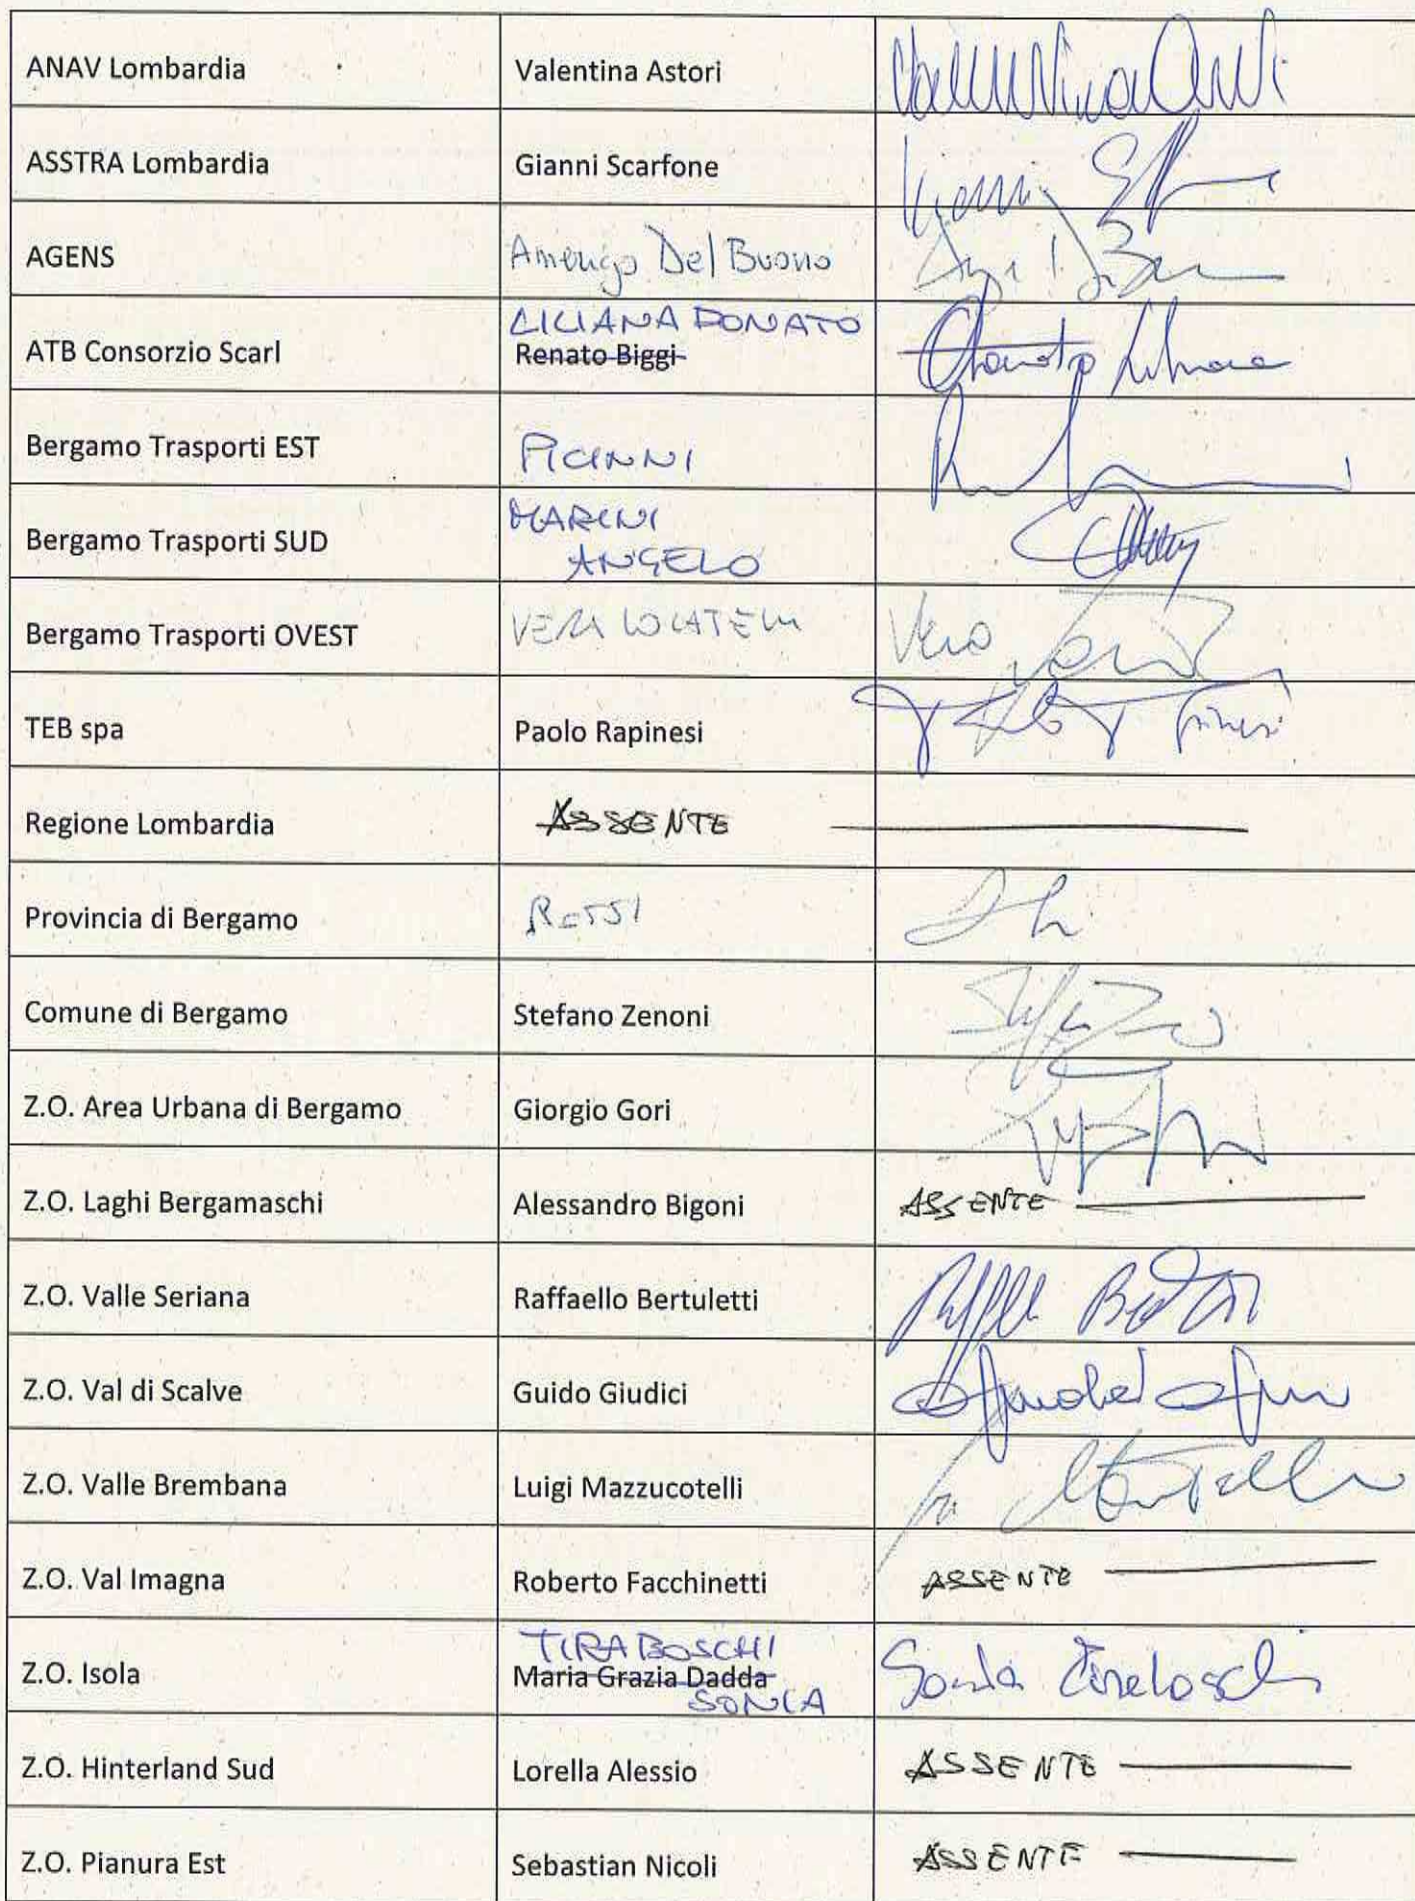 ANAV Lombardia Valentina Astori
ASSTRA Lombardia Gianni Scarfone
AGENS Amerigo Del Buono
LILIANA DONATO
ATB Consorzio Scarl Renato Biggi
Bergamo Trasporti EST PICINNI
MARINI
Bergamo Trasporti SUD
ANGELO
Bergamo Trasporti OVEST VERA LOCATELLI
TEB spa Paolo Rapinesi
Regione Lombardia ASSENTE
Provincia di Bergamo
Comune di Bergamo Stefano Zenoni
Z.O. Area Urbana di Bergamo Giorgio Gori
Z.O. Laghi Bergamaschi Alessandro Bigoni ASSENTE
Z.O. Valle Seriana Raffaello Bertuletti
Z.O. Val di Scalve Guido Giudici
Z.O. Valle Brembana Luigi Mazzucotelli
Z.O. Val Imagna Roberto Facchinetti ASSENTE
TIRABOSCHI
Z.O. Isola Maria Grazia Dadda Sonia Tiraboschi
SONIA
Z.O. Hinterland Sud Lorella Alessio ASSENTE
Z.O. Pianura Est Sebastian Nicoli ASSENTE